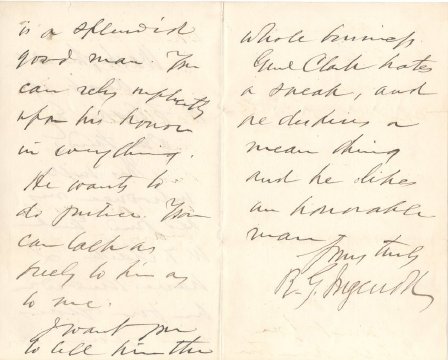 is a splendid
good man. You
can rely implicitly
upon his honor
in everything.
He wants to
do justice. You
can talk as
freely to him as
to me.
I want you
to tell him the
whole business.
Genl Clark hates
a sneak, and
he despises a
mean thing
and he likes
an honorable
man
Yours truly
R. G. Ingersoll